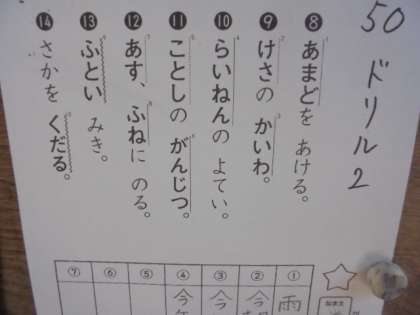 50 ドリル2
⑧ あまどを あける。
⑨ けさの かいわ。
⑩ らいねんの よてい。
⑪ ことしの がんじつ。
⑫ あす、ふねに のる。
⑬ ふとい みき。
⑭ さかを くだる。
① 雨
② 今
③ 今
④ 今
⑤
⑥
⑦